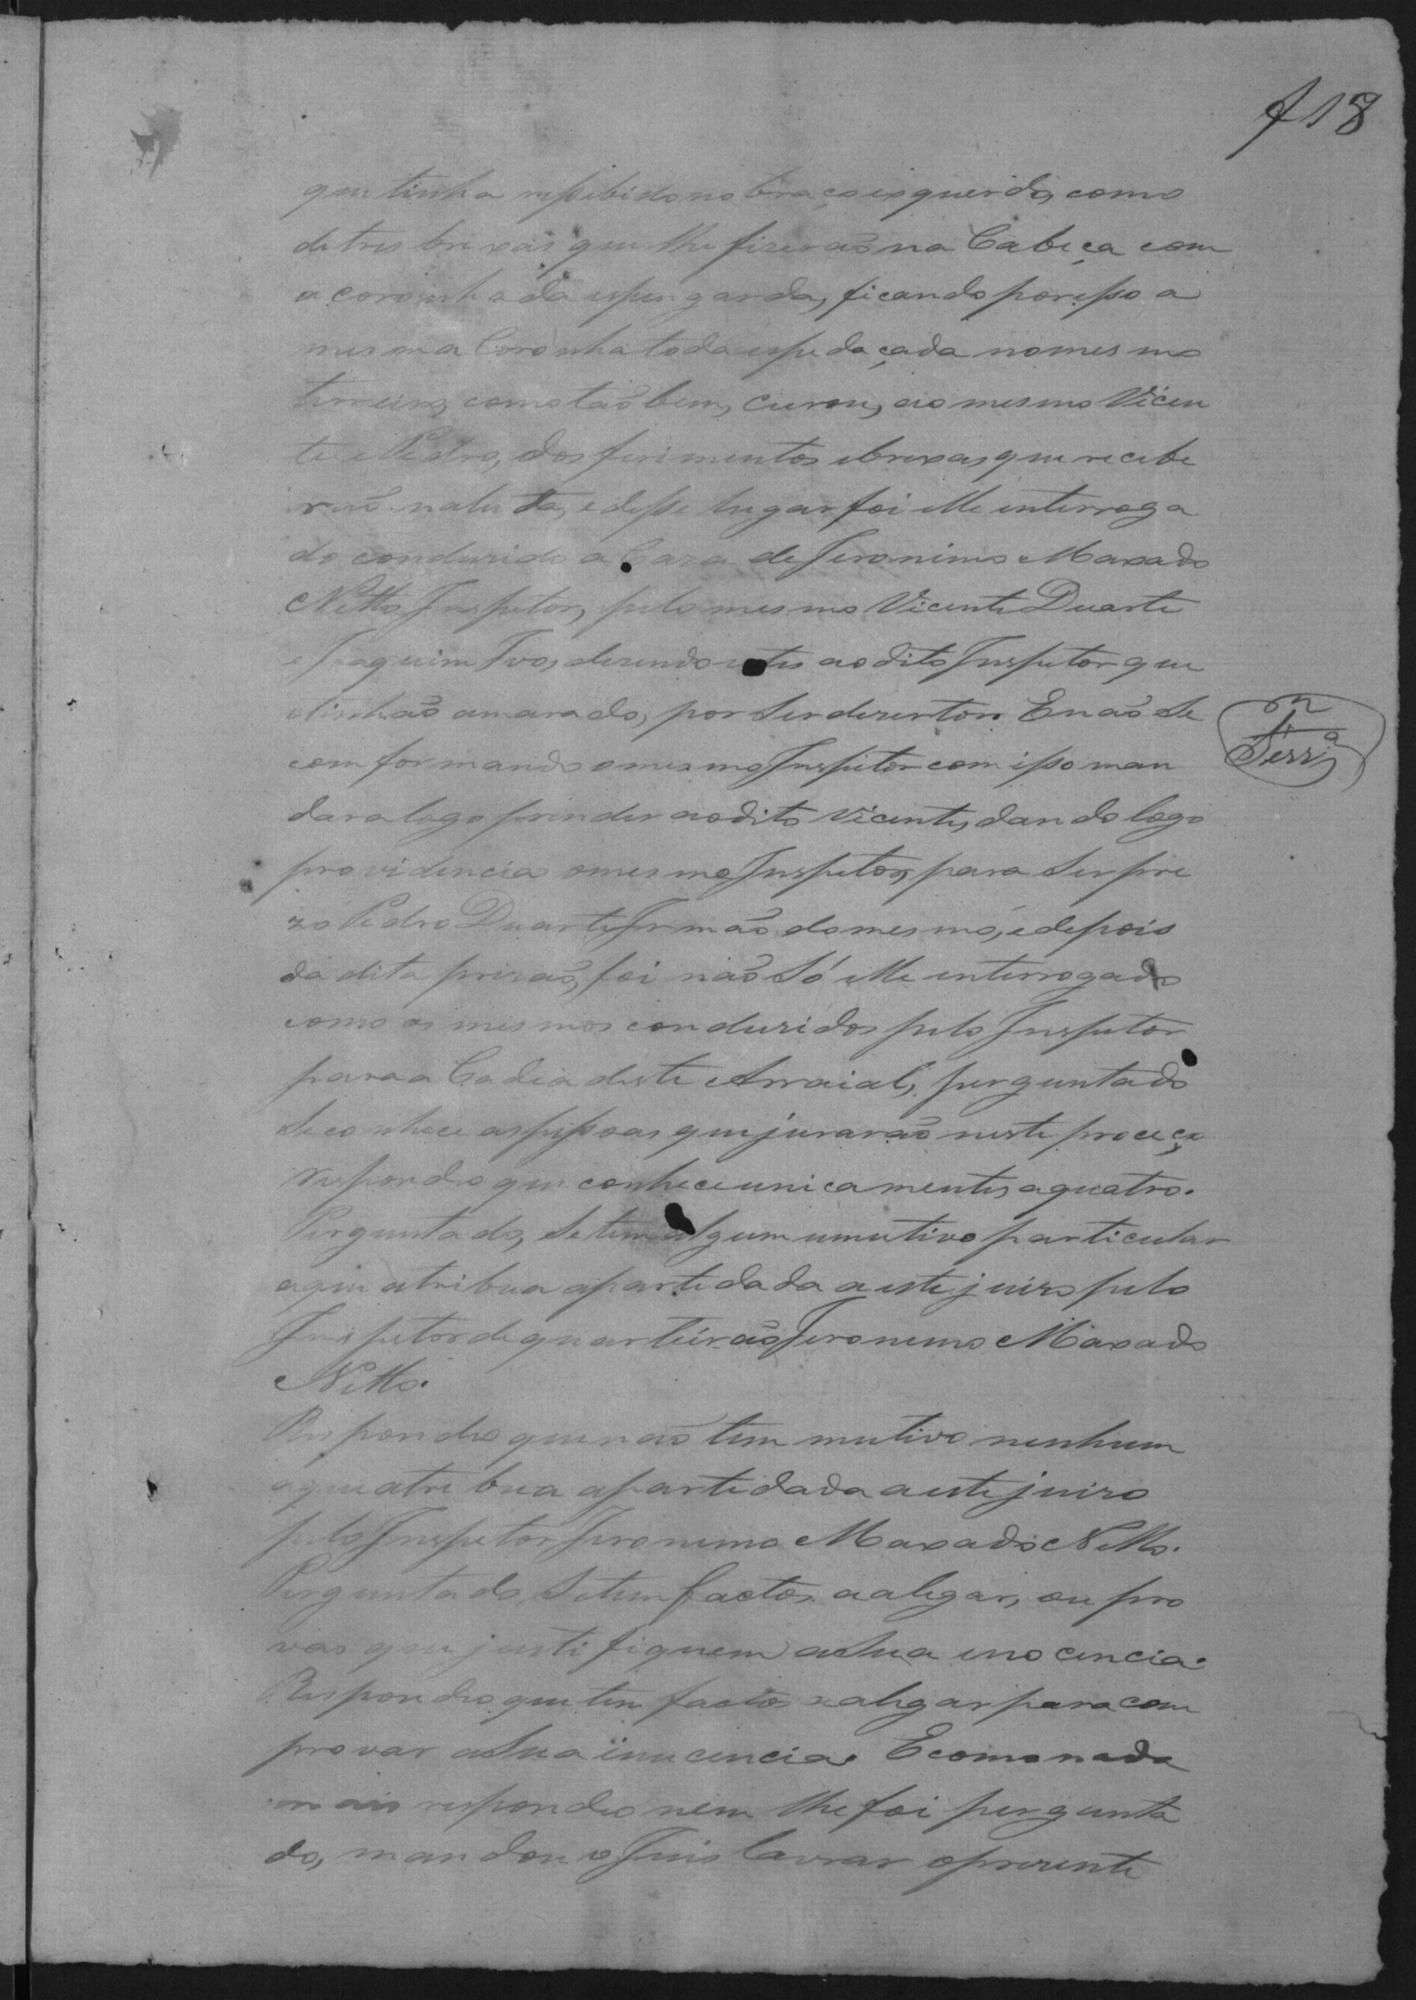 f 18
que tinha ressibido no braço esquerdo, como
de tres brexas que lhe fizerão na Cabeça com
a coronha da espingarda, ficando por isso a
mesma Coronha toda espedaçada no mesmo
terreiro, como tão bem, curou, ao mesmo Vicen
te e Pedro, dos ferimentos e brexas que recebe
rão na luta, e desse lugar foi elle interroga
do conduzido a Caza de Jeronimo Maxado
Netto Inspetor, pelo mesmo Vicente Duarte
e Joaquim Ivo, dizendo estes ao dito Inspetor que
o tinhão amarado, por ser dezertor. E não se
comformando o mesmo Inspetor com isso man
dara logo prender ao dito Vicente, dando logo
providencia o mesmo Inspetor, para ser pre
zo Pedro Duarte Irmão do mesmo, e depois
da dita prizão, foi não só elle interrogado
como os mesmos conduzidos pelo Inspetor
para a Cadia deste Arraial, perguntado
se conhece as pessoas que jurarão neste proceço
respondeo que conhece unicamentes a quatro.
Perguntado, se tem algum umutivo particular
a que atribua a parte dada a este juizo pelo
Inspetor de quarteirão Jeronemo Maxado
Netto.
Respondeo que não tem mutivo nenhum
a que atribua a parte dada a este juizo
pelo Inspetor Jeronemo Maxado Netto.
Perguntado, se tem factos a alegar, ou pro
vas que justifiquem a sua inocencia.
Respondeo que tem factos a alegar para com
provar a sua inucencia. E como nada
mais respondeo nem lhe foi pergunta
do, mandou o Juis lavrar o prezente